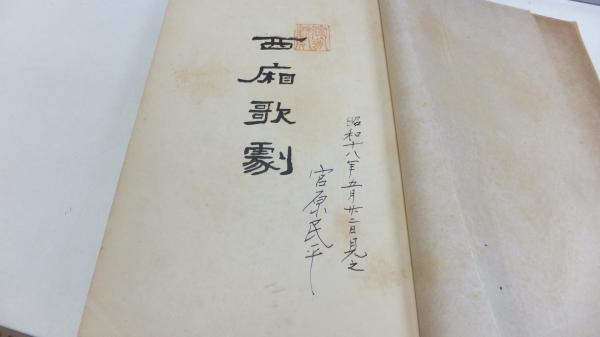 昭和十八年五月廿二日見之
宮原民平
西廂歌劇